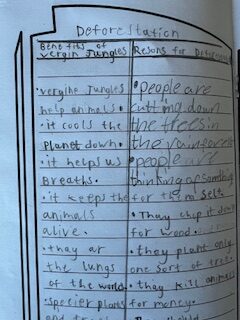 Deforestation
Benefits of
vergin Jungles
Resons for Deforest
• vergine Jungles
help animals.
• it cools the
Planet down.
• it helps us
Breaths.
• it keeps the
animals
alive.
• thay ar
the lungs
of the world.
• specier plants
• people are
cutting down
the trees in
the rainforest
• people are
thinking of
for them self.
• Thay chop it down
for wood.
• they plant only
one sort of tree.
• they kill animals
for money.